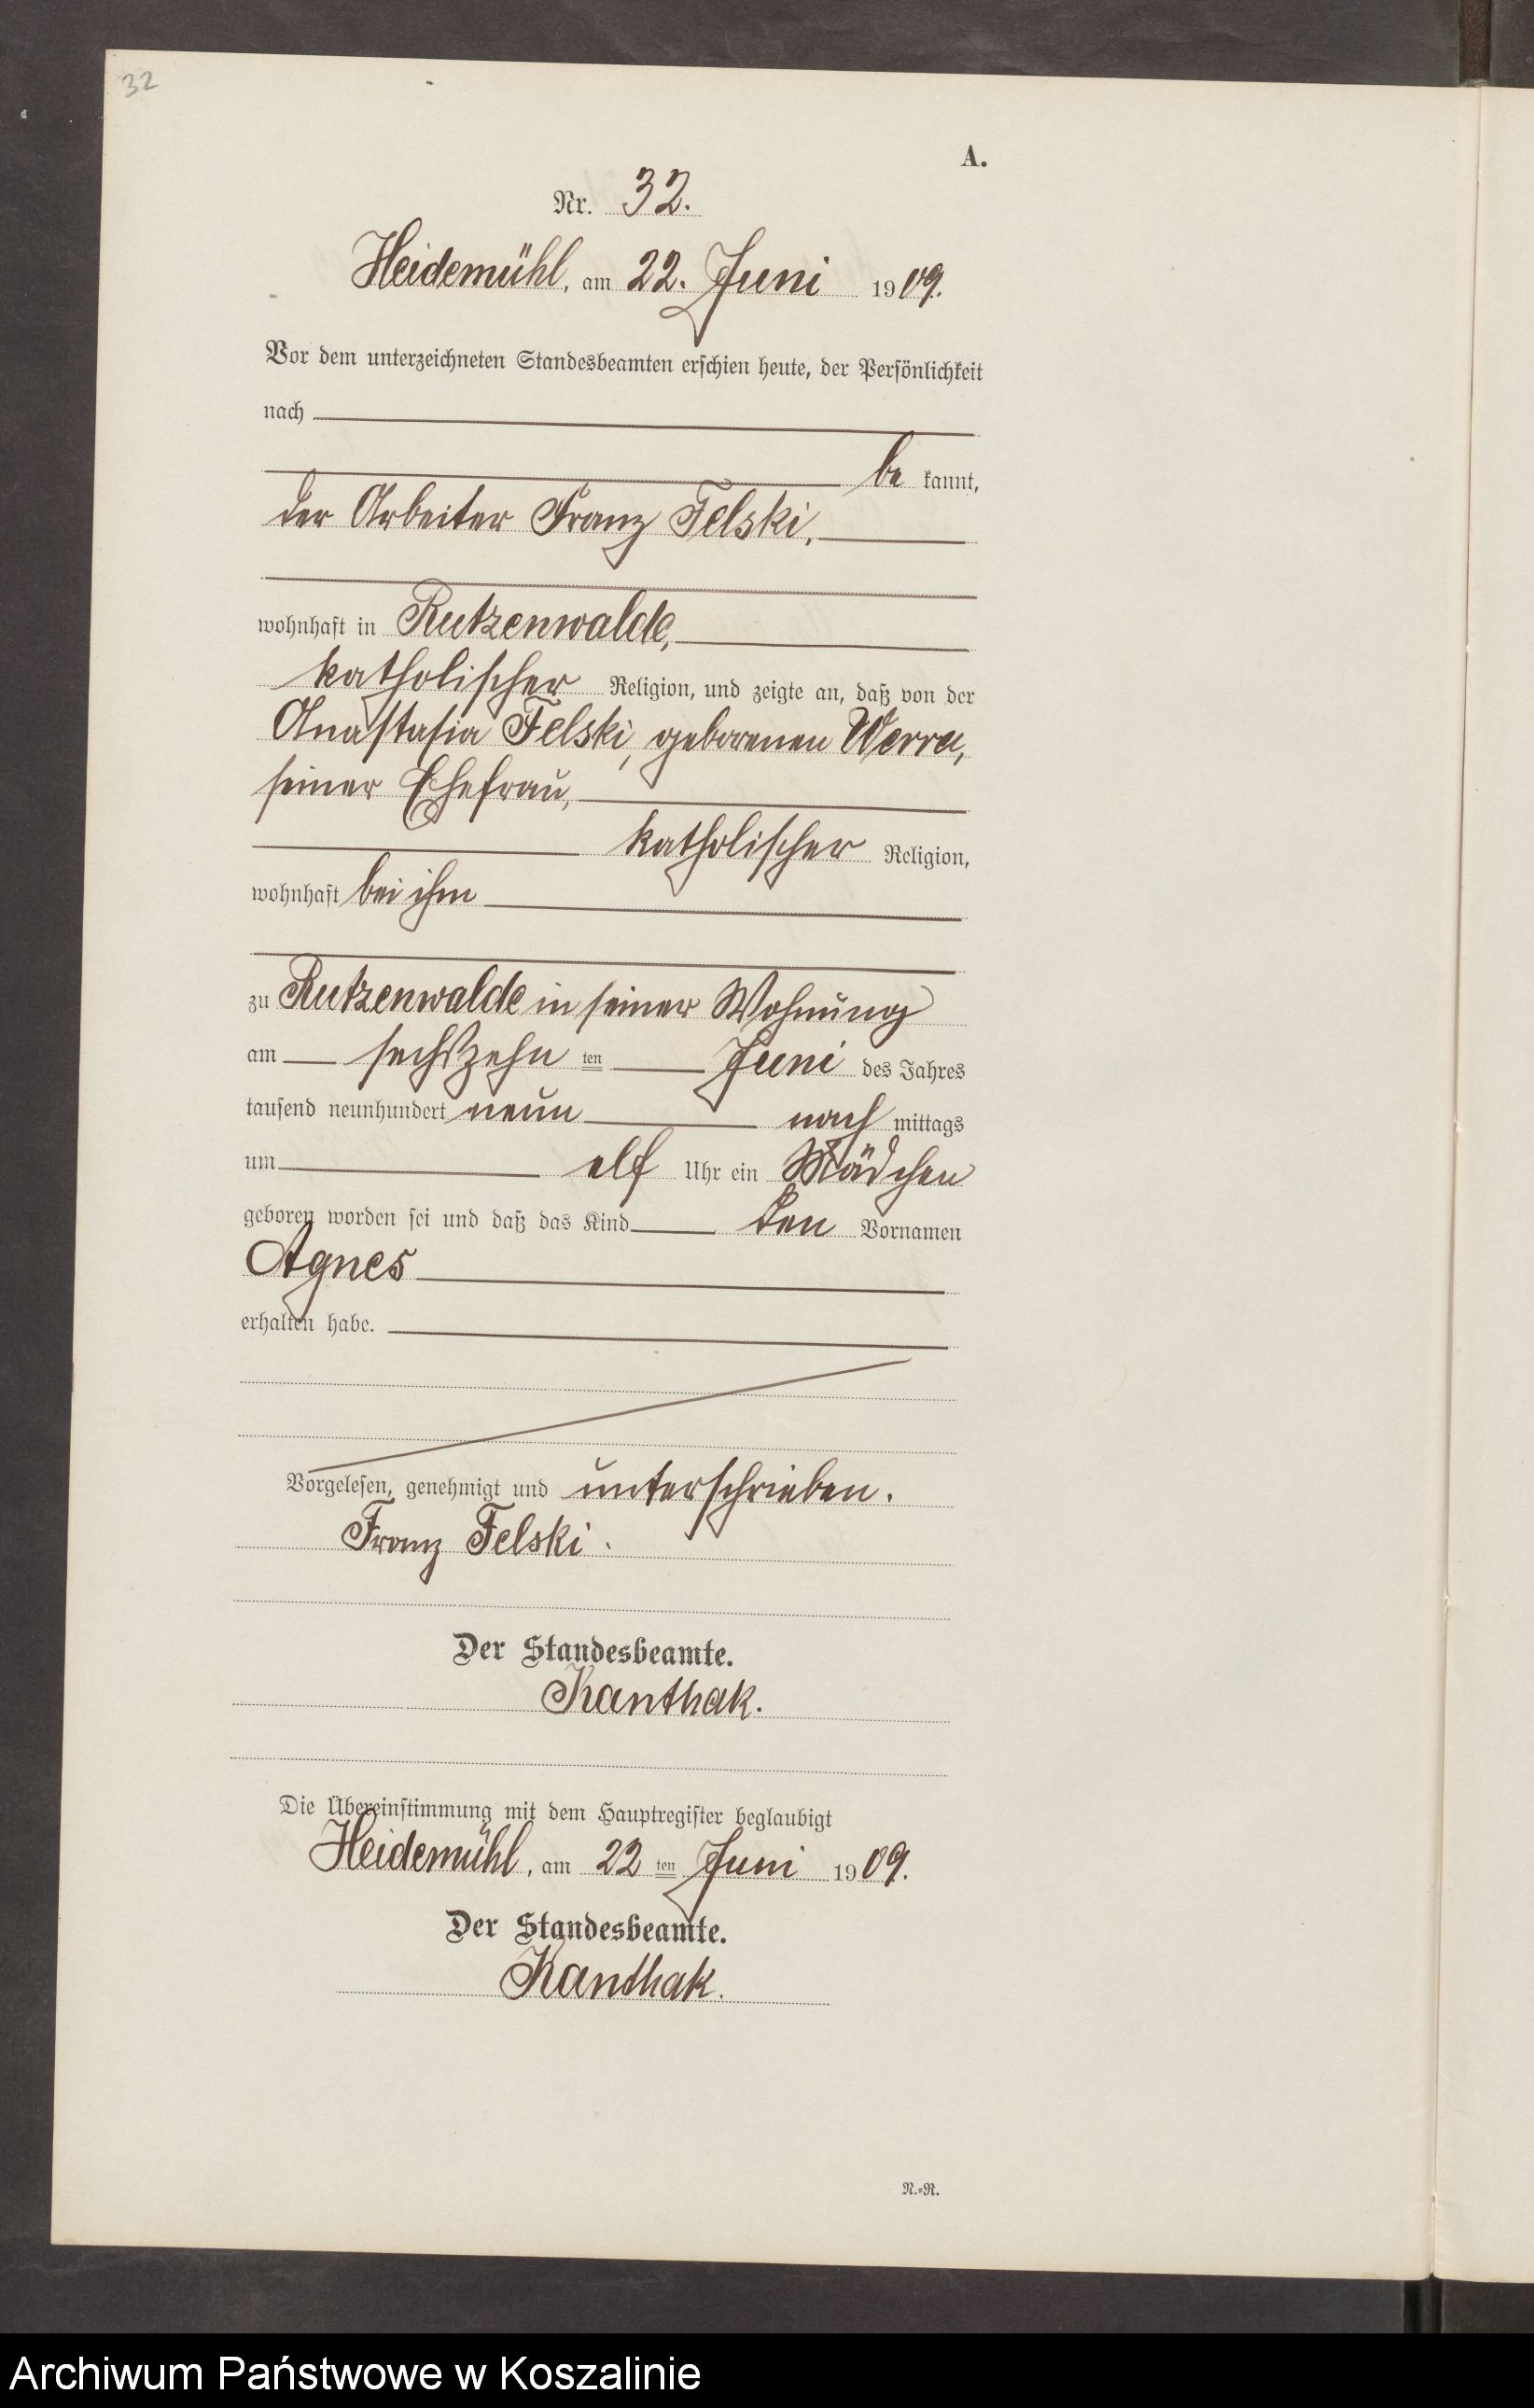 32
A.
Nr. 32.
Heidemühl, am 22. Juni 1909.
Vor dem unterzeichneten Standesbeamten erschien heute, der Persönlichkeit
nach
be kannt,
der Arbeiter Franz Felski,
wohnhaft in Rutzenwalde,
katholischer Religion, und zeigte an, daß von der
Anastasia Felski, geborenen Werra,
seiner Ehefrau,
katholischer Religion,
wohnhaft bei ihm
zu Rutzenwalde in seiner Wohnung
am sechszehn ten Juni des Jahres
tausend neunhundert neun nach mittags
um elf Uhr ein Mädchen
geboren worden sei und daß das Kind den Vornamen
Agnes
erhalten habe.
Vorgelesen, genehmigt und unterschrieben.
Franz Felski.
Der Standesbeamte.
Kanthak.
Die Übereinstimmung mit dem Hauptregister beglaubigt
Heidemühl, am 22 ten Juni 1909.
Der Standesbeamte.
Kanthak.
N.=R.
Archiwum Państwowe w Koszalinie